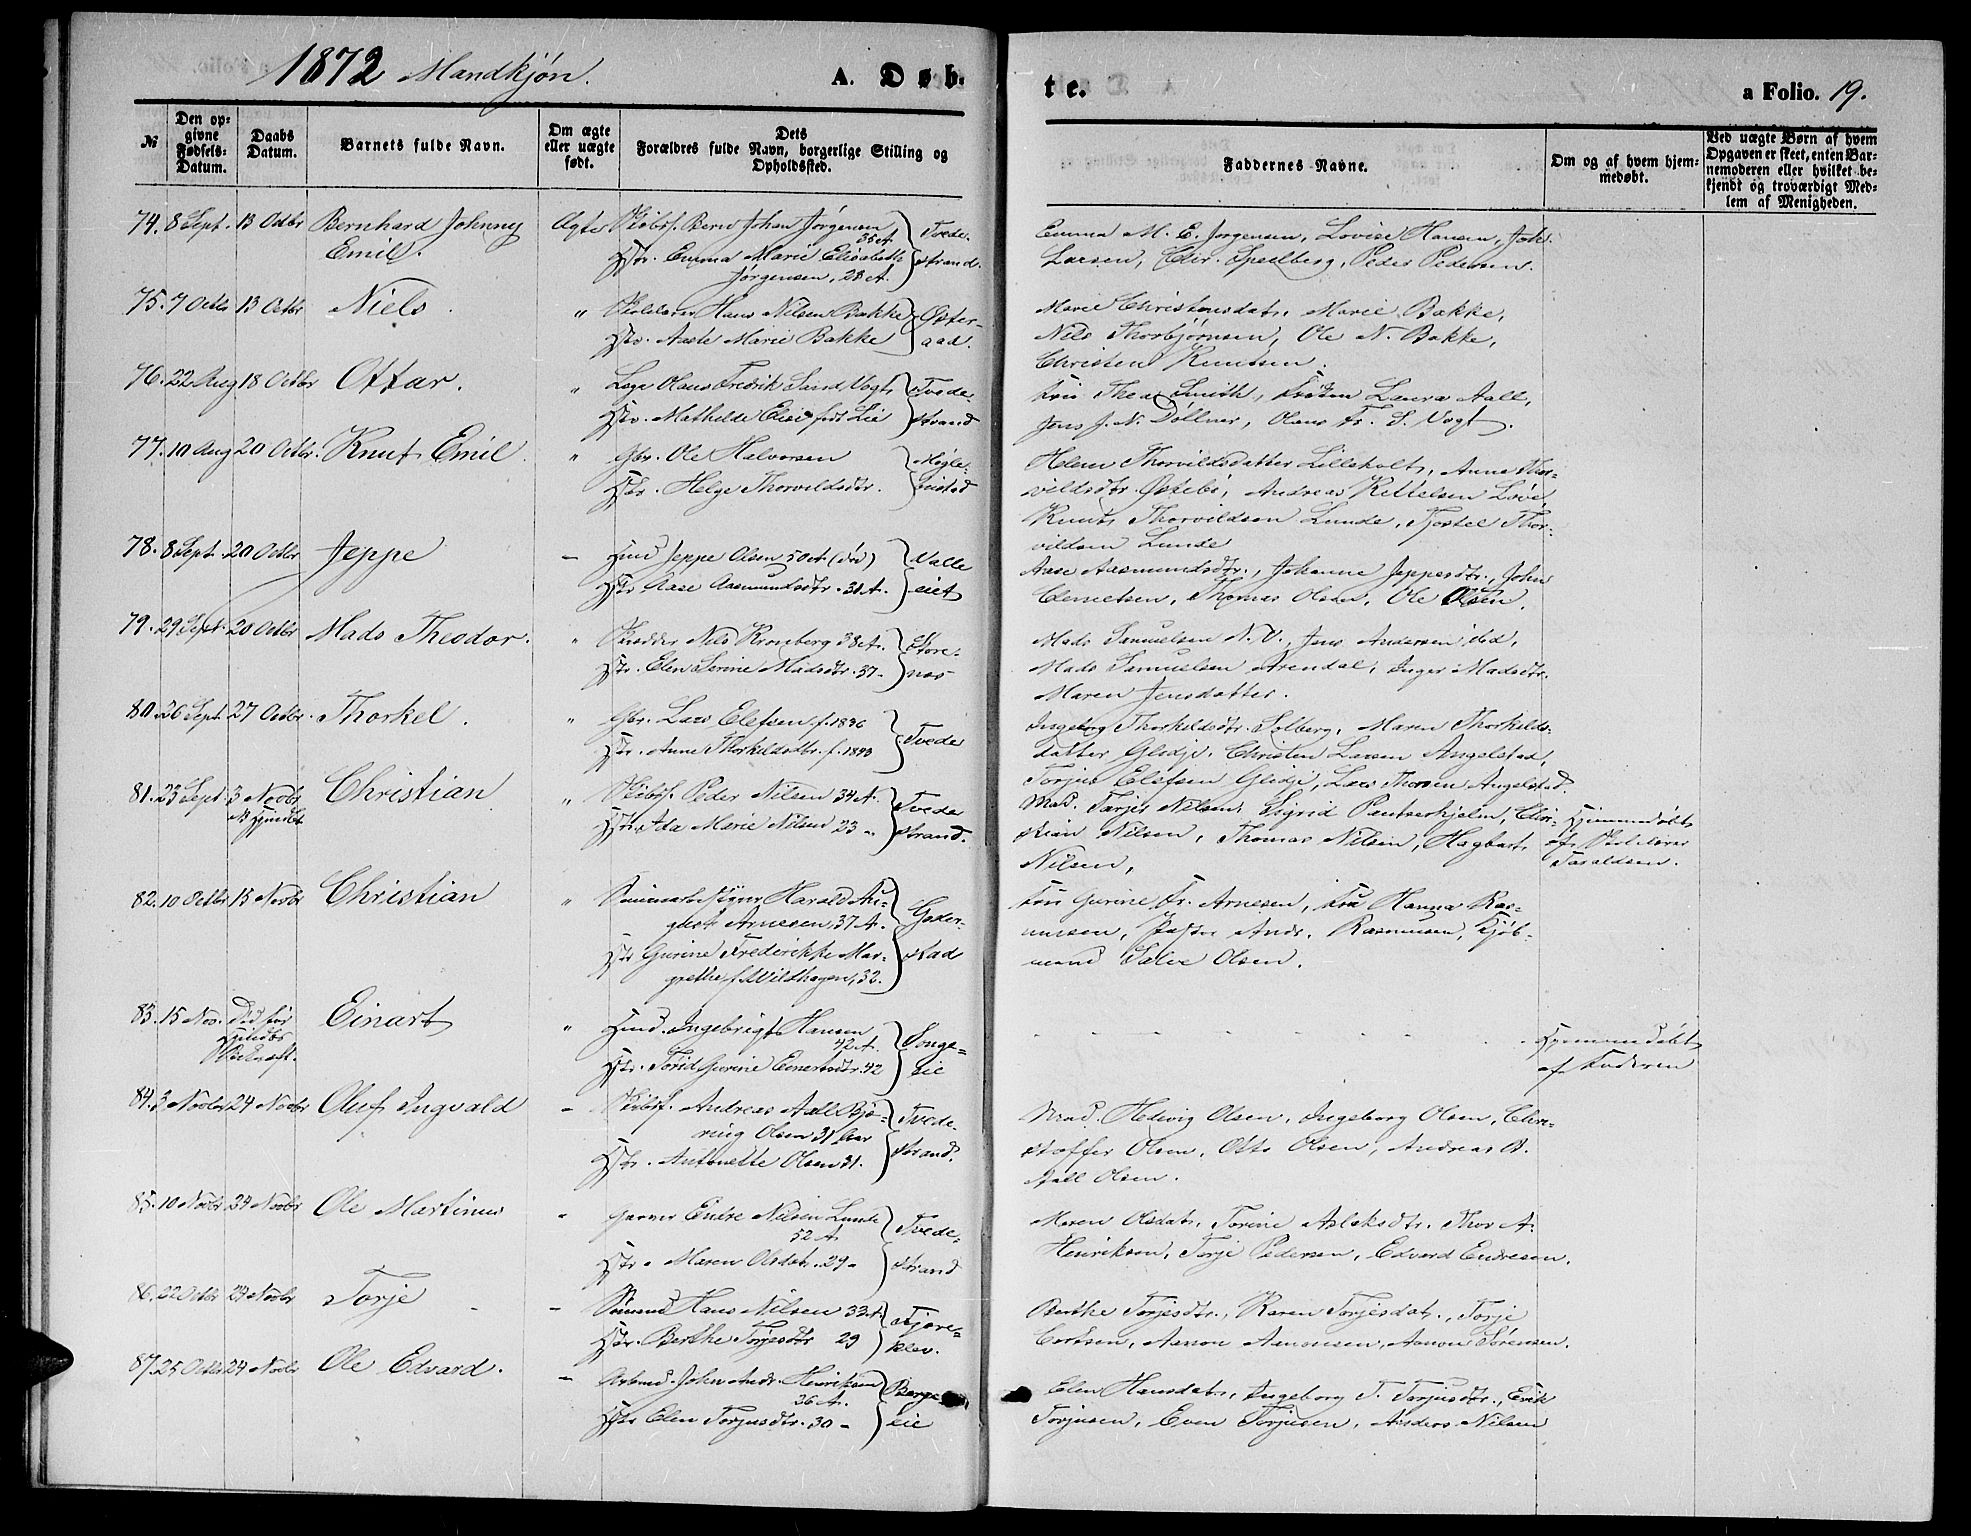 1872 Mandkjøn. A. Døb-
te. a Folio. 19.
№ Den opgivne Fødsels-Datum. Daabs Datum. Barnets fulde Navn. Om ægte eller uægte født. Dets Forældres fulde Navn, borgerlige Stilling og Opholdssted.
Faddernes Navne. Om og af hvem hjemmedøbt. Ved uægte Børn af hvem Opgaven er skeet, enten Barnemoderen eller hvilket bekjendt og troværdigt Medlem af Menigheden.
74. 8 Sept. 13 Octbr Bernhard Johnny Emil. Ægte Skibsf. Bernt Johan Jørgensen 35 A. Hstr. Emma Marie Elisabeth Jørgensen, 28 A. Tvedestrand.
Emma M. E. Jørgensen, Lovise Hansen, Joh. Larsen, Chr. Speilberg, Peder Pedersen.
75. 7 Octbr 13 Octbr Niels. " Skolelærer Hans Nilsen Bakke Hstr. Aaste Marie Bakke Østeraad.
Marie Christensdatr. Marie Bakke, Nils Thorbjørnsen, Ole N. Bakke, Christen Knudsen.
76. 22 Aug 18 Octbr Ottar. " Læge Olaus Fredrik Sand Vogt, Hstr. Mathilde Elise født Lie Tvedestrand
Fru Thea Smith, Frøken Laura Aall, Jens J. N. Döllner, Olaus Fr. S. Vogt.
77. 10 Aug 20 Octbr. Knut Emil " Gbr. Ole Halvorsen Hstr. Helge Thorvildsdtr.
Helene Thorvildsdatter Lilleholt, Anne Thorvildsdtr. Østebø, Andreas Kittelsen Knut Thorvildsen Lunde, Tostel Thorvildsen Lunde
78. 8 Sept. 20 Octbr Jeppe — Hmd Jeppe Olsen 50 A (død) Hstr Aase Aasmundsdtr. 31 A. Valleeiet
Aase Aasmundsdtr., Johanne Jeppesdtr., John Clemetsen, Thomas Olsen, Ole Olsen.
79. 29 Sept. 20 Octbr Mads Theodor. " Nils Kronberg 38 A. Hstr. Elen Serine Madsdtr. 37 -
Mads Samuelsen N. V., Jens Andersen ibd, Mads Samuelsen Arendal, Inger Madsdtr. Maren Jensdatter.
80. 26 Sept. 27 Octbr. Thorkel. " Gbr. Lars Elefsen f. 1836 Hstr. Anne Thorkeldsdtr. f. 1843 Tvede
Ingeborg Thorkeldsdtr. Solberg, Maren Thorkeldsdatter Glidje, Christen Larsen Angelstad, Torjus Elefsen Glidje, Lars Thorsen Angelstad.
81. 23 Sept. 3 Novbr Christian " Skibsf. Peder Nilsen 34 A. Hstr. Ada Marie Nilsen 23 - Tvedestrand.
Mad. Tarjer Nilsen, Sigrid Pantserhjelm, Christian Nilsen, Thomas Nilsen, Hagbart Nilsen, Hjemmedøbt af Taraldsen.
82. 10 Octbr 15 Novbr Christian " Harald August Arnesen, 37 A. Hstr Gurine Frederikke Margrethe f. Wildhagen, 32. Goderstad
Fru Gurine Fr. Arnesen, Fru Hanna Rasmussen, Pastor Andr. Rasmussen, Kjøbmand Salve Olsen.
83. 15 Nov. Død før Einart " Hmd. Ingebrigt Hansen 42 A. Hstr. Torid Gurine Einertsdtr. 42 Songeeie
Hjemmedøbt af Faderen
84. 3 Novbr 24 Novbr Oluf Ingvald — Skibsf. Andreas Aall Bjøring Olsen 31 Aar Hstr. Antonette Olsen 31. Tvedestrand.
Mad. Hedevig Olsen, Ingeborg Olsen, Christoffer Olsen, Otto Olsen, Andreas B. Aall Olsen.
85. 10 Novbr 24 Novbr Ole Martinus " Garver Endre Nilsen Lunde 52 A. Hstr. Maren Olsdatr. 29 - Tvedestrand
Maren Olsdatr., Torine Aslaksdtr. Thor A. Henriksen, Torje Pedersen, Edvard Endresen.
86. 22 Octbr 24 Novbr Torje — Sømand Hans Nilsen 33 A. Hstr. Berthe Torjesdtr 29
Berthe Torjesdtr., Karen Torjesdatr., Torje Aanon Aanonsen, Aanon Sørensen.
87. 25 Octbr 24 Novbr Ole Edvard. — Arbmd. John Andr. Henriksen 26 A. Hstr Elen Torjusdtr. 30 - Bergeeie
Elen Hansdatr., Ingeborg T. Torjusdtr., Erik Torjusen, Even Torjusen, Anders Nilsen